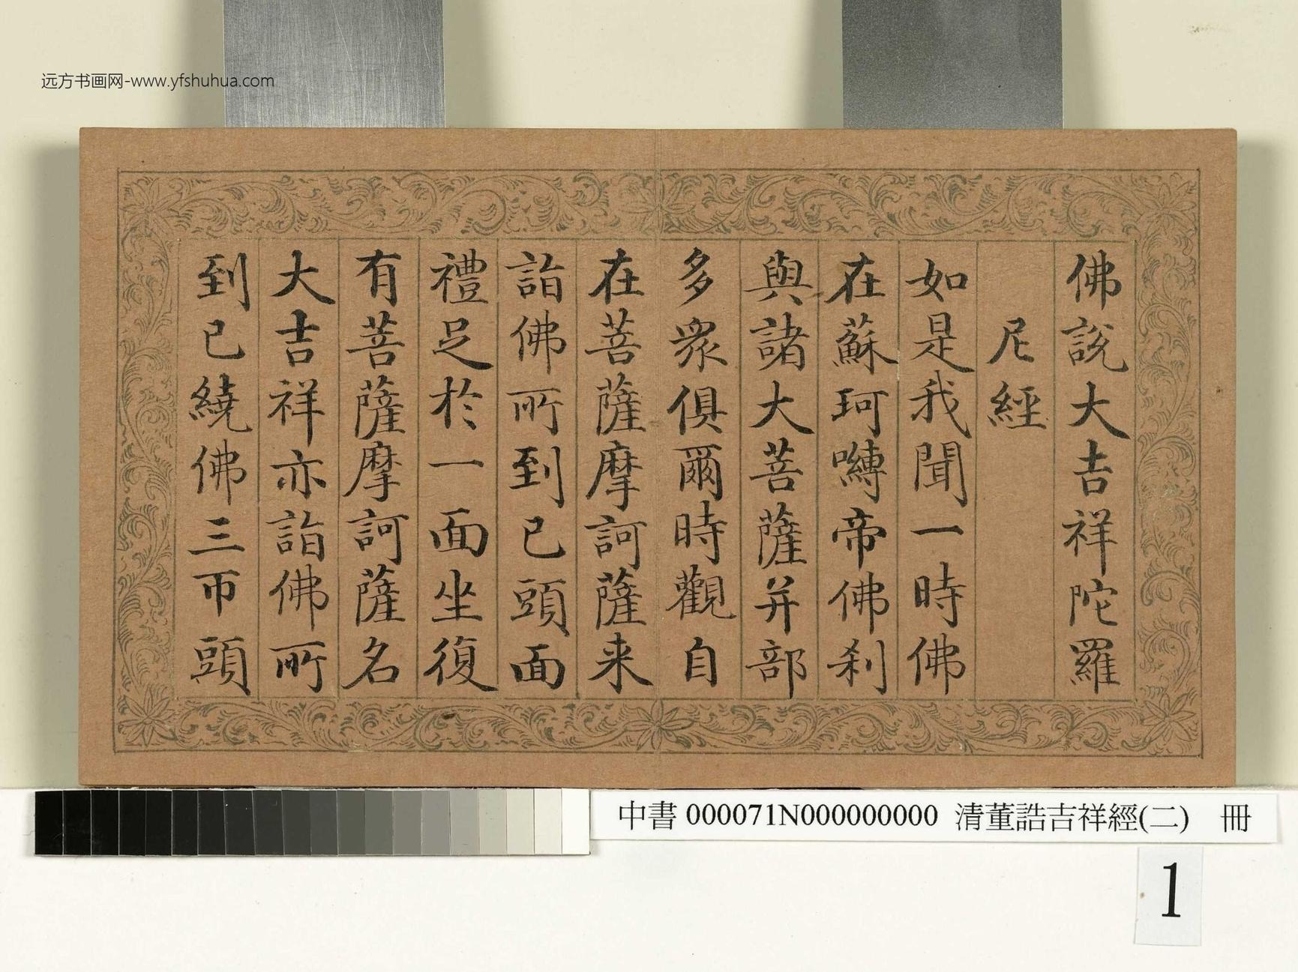 远方书画网-www.yfshuhua.com
佛說大吉祥陀羅
尼經
如是我聞一時佛
在蘇珂嚩帝佛刹
與諸大菩薩并部
多衆俱爾時觀自
在菩薩摩訶薩来
詣佛所到已頭面
禮足於一面坐復
有菩薩摩訶薩名
大吉祥亦詣佛所
到已繞佛三帀頭
中書 000071N000000000 清董誥吉祥經(二) 冊
1